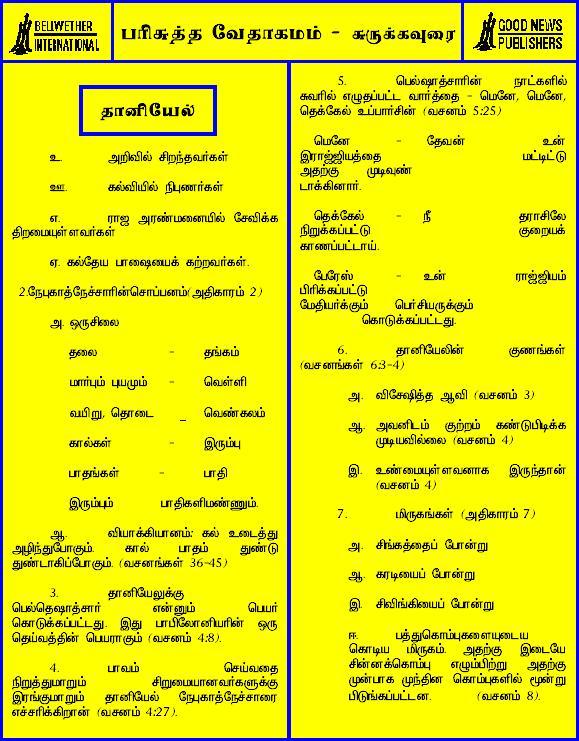 BELLWETHER
INTERNATIONAL
பரிசுத்த வேதாகமம் - சுருக்கவுரை
GOOD NEWS
PUBLISHERS
தானியேல்
உ. அறிவில் சிறந்தவர்கள்
ஊ. கல்வியில் நிபுணர்கள்
எ. ராஜ அரண்மனையில் சேவிக்க
திறமையுள்ளவர்கள்
ஏ. கல்தேய பாஷையைக் கற்றவர்கள்.
2.நேபுகாத்நேச்சாரின்சொப்பனம்(அதிகாரம் 2)
அ. ஒருசிலை
தலை - தங்கம்
மார்பும் புயமும் - வெள்ளி
வயிறு, தொடை _ வெண்கலம்
கால்கள் - இரும்பு
பாதங்கள் - பாதி
இரும்பும் பாதிகளிமண்ணும்.
ஆ. வியாக்கியானம்: கல் உடைத்து
அழிந்துபோகும். கால் பாதம் துண்டு
துண்டாகிப்போகும். (வசனங்கள் 36-45)
3. தானியேலுக்கு
பெல்தெஷாத்சார் என்னும் பெயர்
கொடுக்கப்பட்டது. இது பாபிலோனியரின் ஒரு
தெய்வத்தின் பெயராகும் (வசனம் 4:8).
4. பாவம் செய்வதை
நிறுத்துமாறும் சிறுமையானவர்களுக்கு
இரங்குமாறும் தானியேல் நேபுகாத்நேச்சாரை
எச்சரிக்கிறான் (வசனம் 4:27).
5. பெல்ஷாத்சாரின் நாட்களில்
சுவரில் எழுதப்பட்ட வார்த்தை - மெனே, மெனே,
தெக்கேல் உப்பார்சின் (வசனம் 5:25)
மெனே - தேவன் உன்
இராஜ்ஜியத்தை மட்டிட்டு
அதற்கு முடிவுண்
டாக்கினார்.
தெக்கேல் - நீ தராசிலே
நிறுக்கப்பட்டு குறையக்
காணப்பட்டாய்.
பேரேஸ் - உன் ராஜ்ஜியம்
பிரிக்கப்பட்டு
மேதியர்க்கும் பெர்சியருக்கும்
கொடுக்கப்பட்டது.
6. தானியேலின் குணங்கள்
(வசனங்கள் 6:3-4)
அ. விசேஷித்த ஆவி (வசனம் 3)
ஆ. அவனிடம் குற்றம் கண்டுபிடிக்க
முடியவில்லை (வசனம் 4)
இ. உண்மையுள்ளவனாக இருந்தான்
(வசனம் 4)
7. மிருகங்கள் (அதிகாரம் 7)
அ. சிங்கத்தைப் போன்று
ஆ. கரடியைப் போன்று
இ. சிவிங்கியைப் போன்று
ஈ. பத்துகொம்புகளையுடைய
கொடிய மிருகம். அதற்கு இடையே
சின்னக்கொம்பு எழும்பிற்று அதற்கு
முன்பாக முந்தின கொம்புகளில் மூன்று
பிடுங்கப்பட்டன. (வசனம் 8).